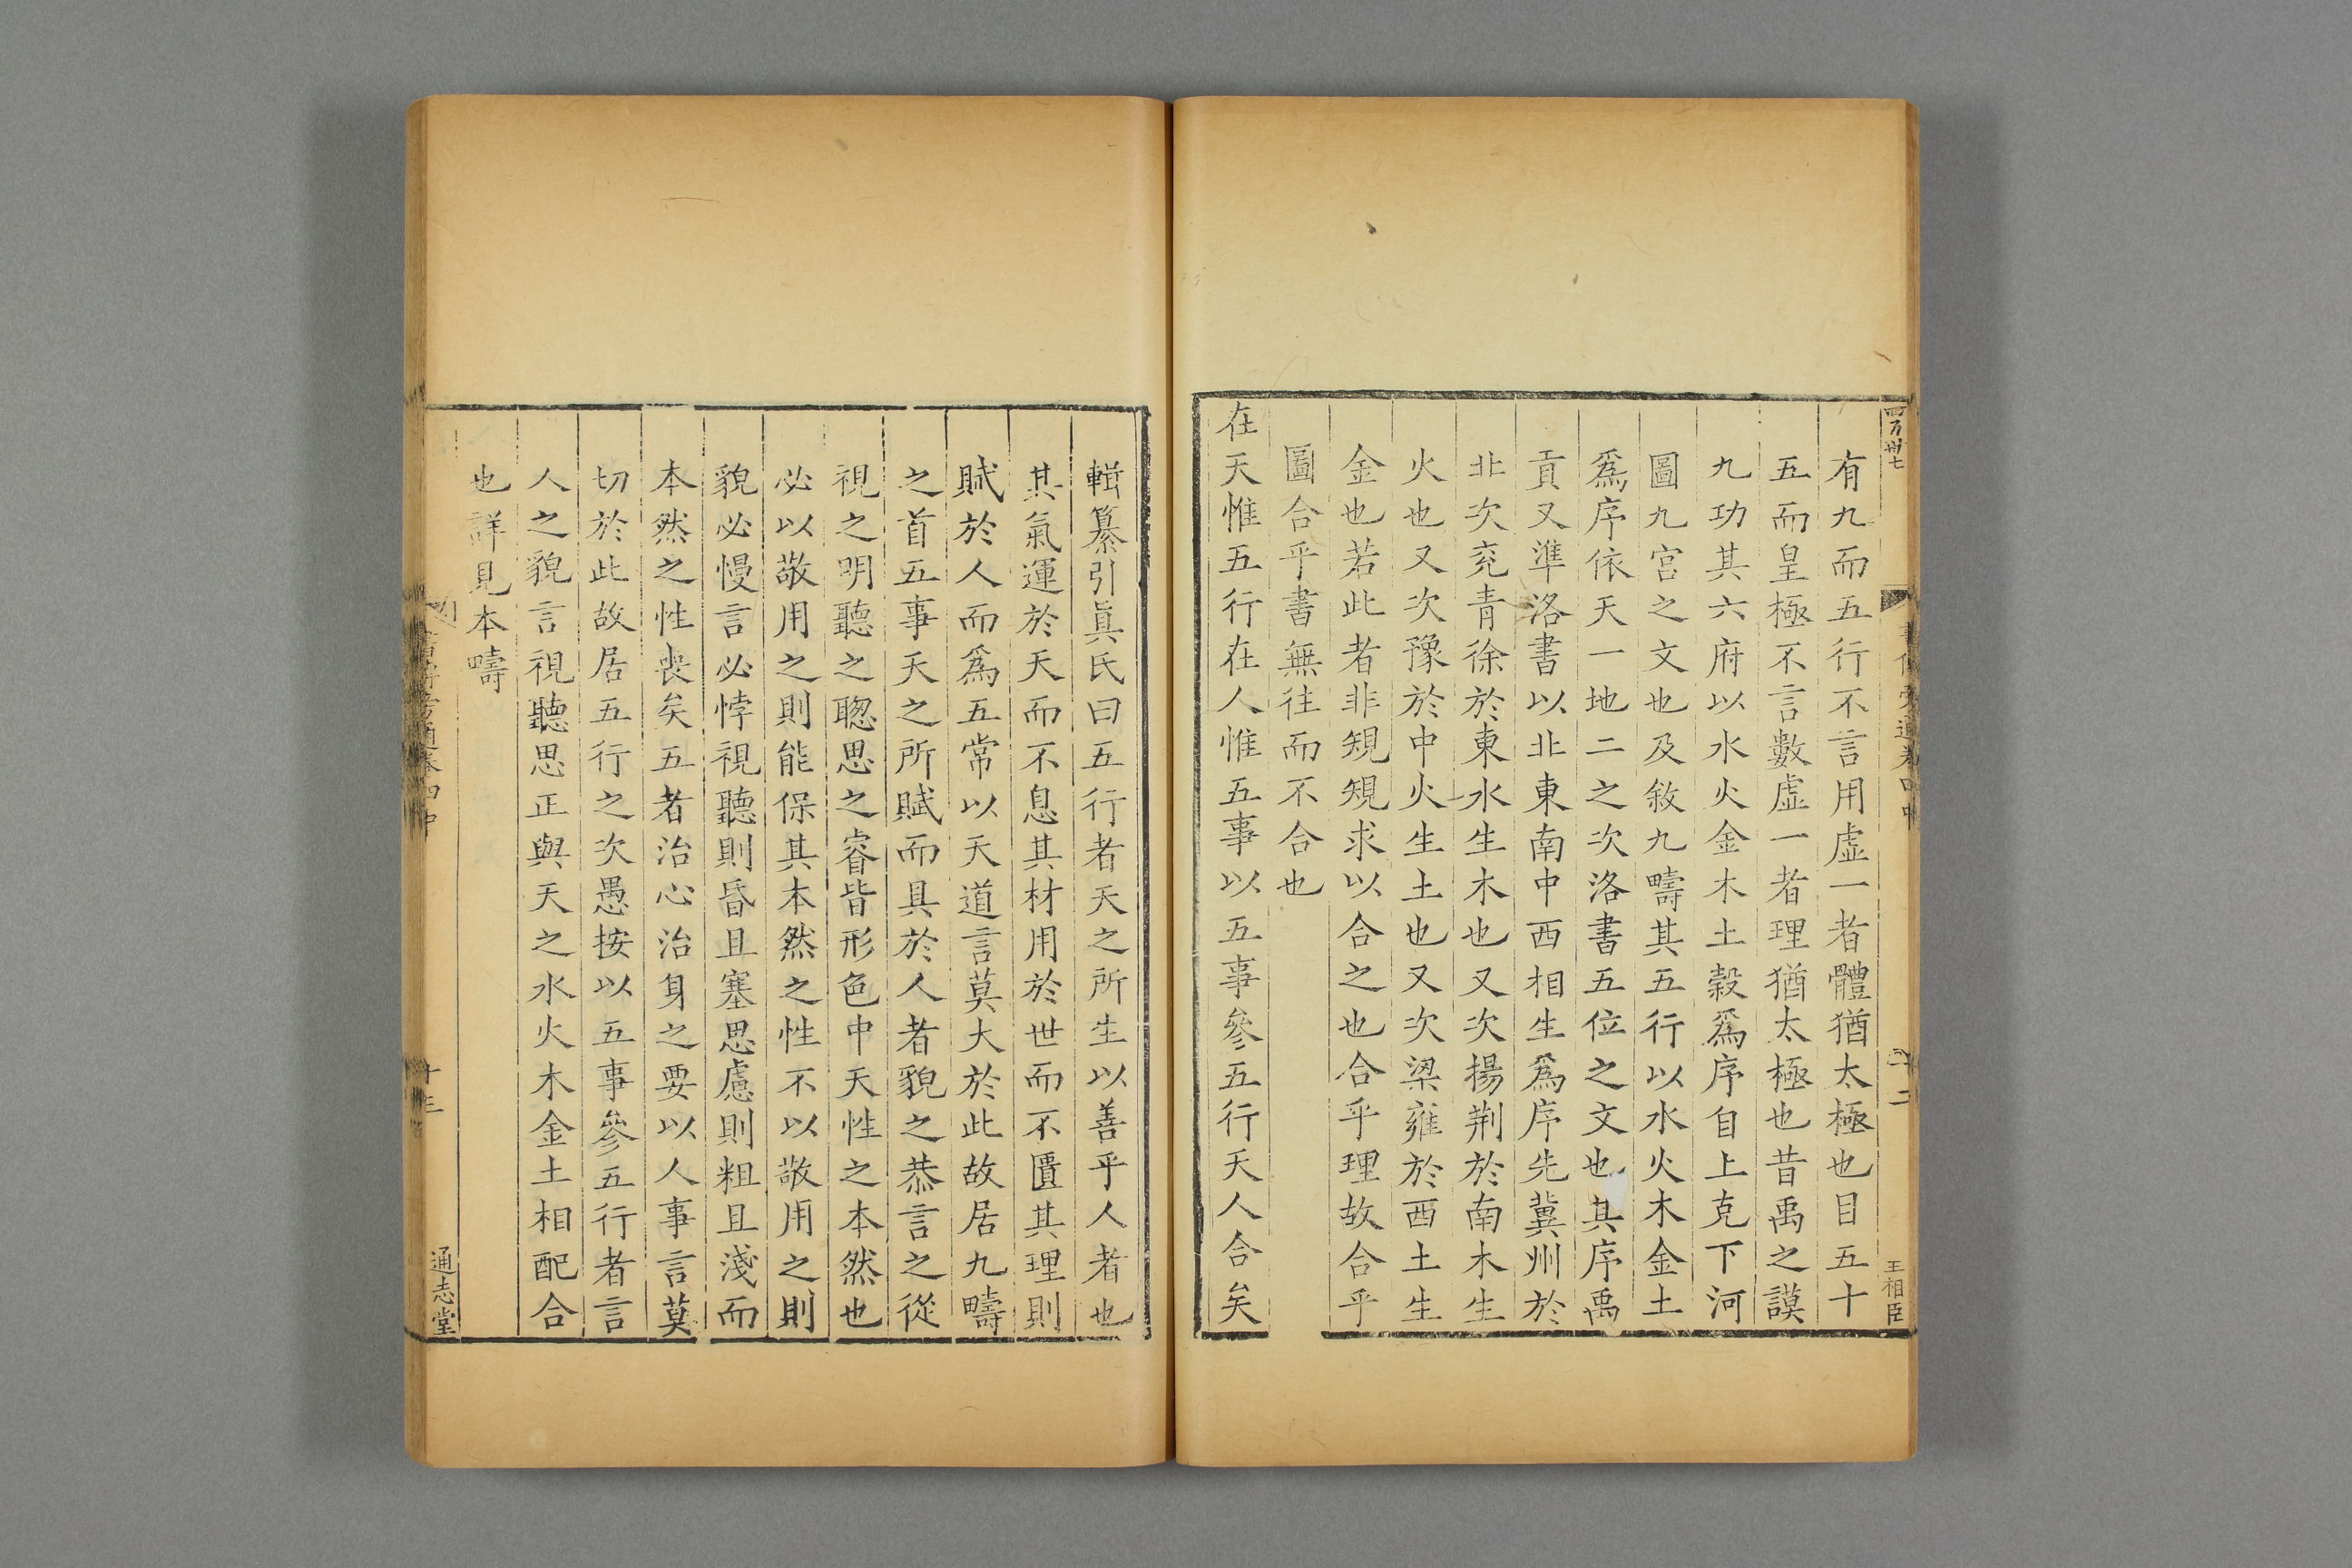 有九而五行不言用虛一者體猶太極也目五十
五而皇極不言數虛一者理猶太極也昔禹之謨
九功其六府以水火金木土穀爲序自上克下河
圖九宮之文也及敘九疇其五行以水火木金土
爲序依天一地二之次洛書五位之文也其序禹
貢又準洛書以北東南中西相生爲序先冀州於
北次兖青徐於東水生木也又次揚荆於南木生
火也又次豫於中火生土也又次梁雍於西土生
金也若此者非䂓䂓求以合之也合乎理故合乎
圖合乎書無往而不合也
在天惟五行在人惟五事以五事參五行天人合矣
王相臣
輯纂引眞氏曰五行者天之所生以善乎人者也
其氣運於天而不息其材用於世而不匱其理則
賦於人而爲五常以天道言莫大於此故居九疇
之首五事天之所賦而具於人者貌之恭言之從
視之明聽之聰思之睿皆形色中天性之本然也
必以敬用之則能保其本然之性不以敬用之則
貌必慢言必悖視聽則昏且塞思慮則粗且淺而
本然之性喪矣五者治心治身之要以人事言莫
切於此故居五行之次愚按以五事參五行者言
人之貌言視聽思正與天之水火木金土相配合
也詳見本疇
十三
通志堂